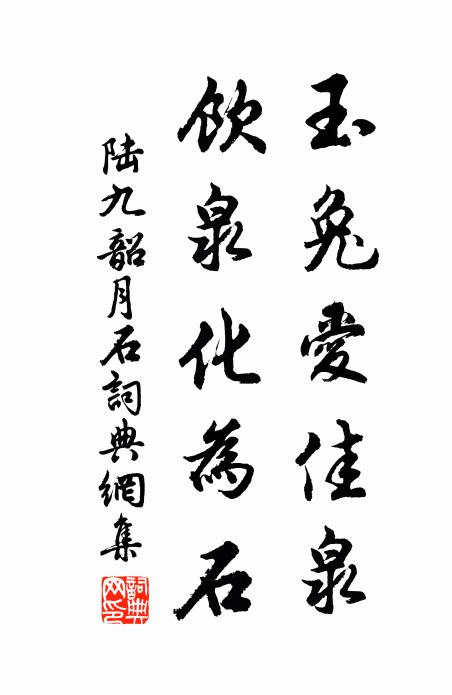 玉兔愛佳泉
飲泉化為石
陸九韶月石詞典網集
詞典网印